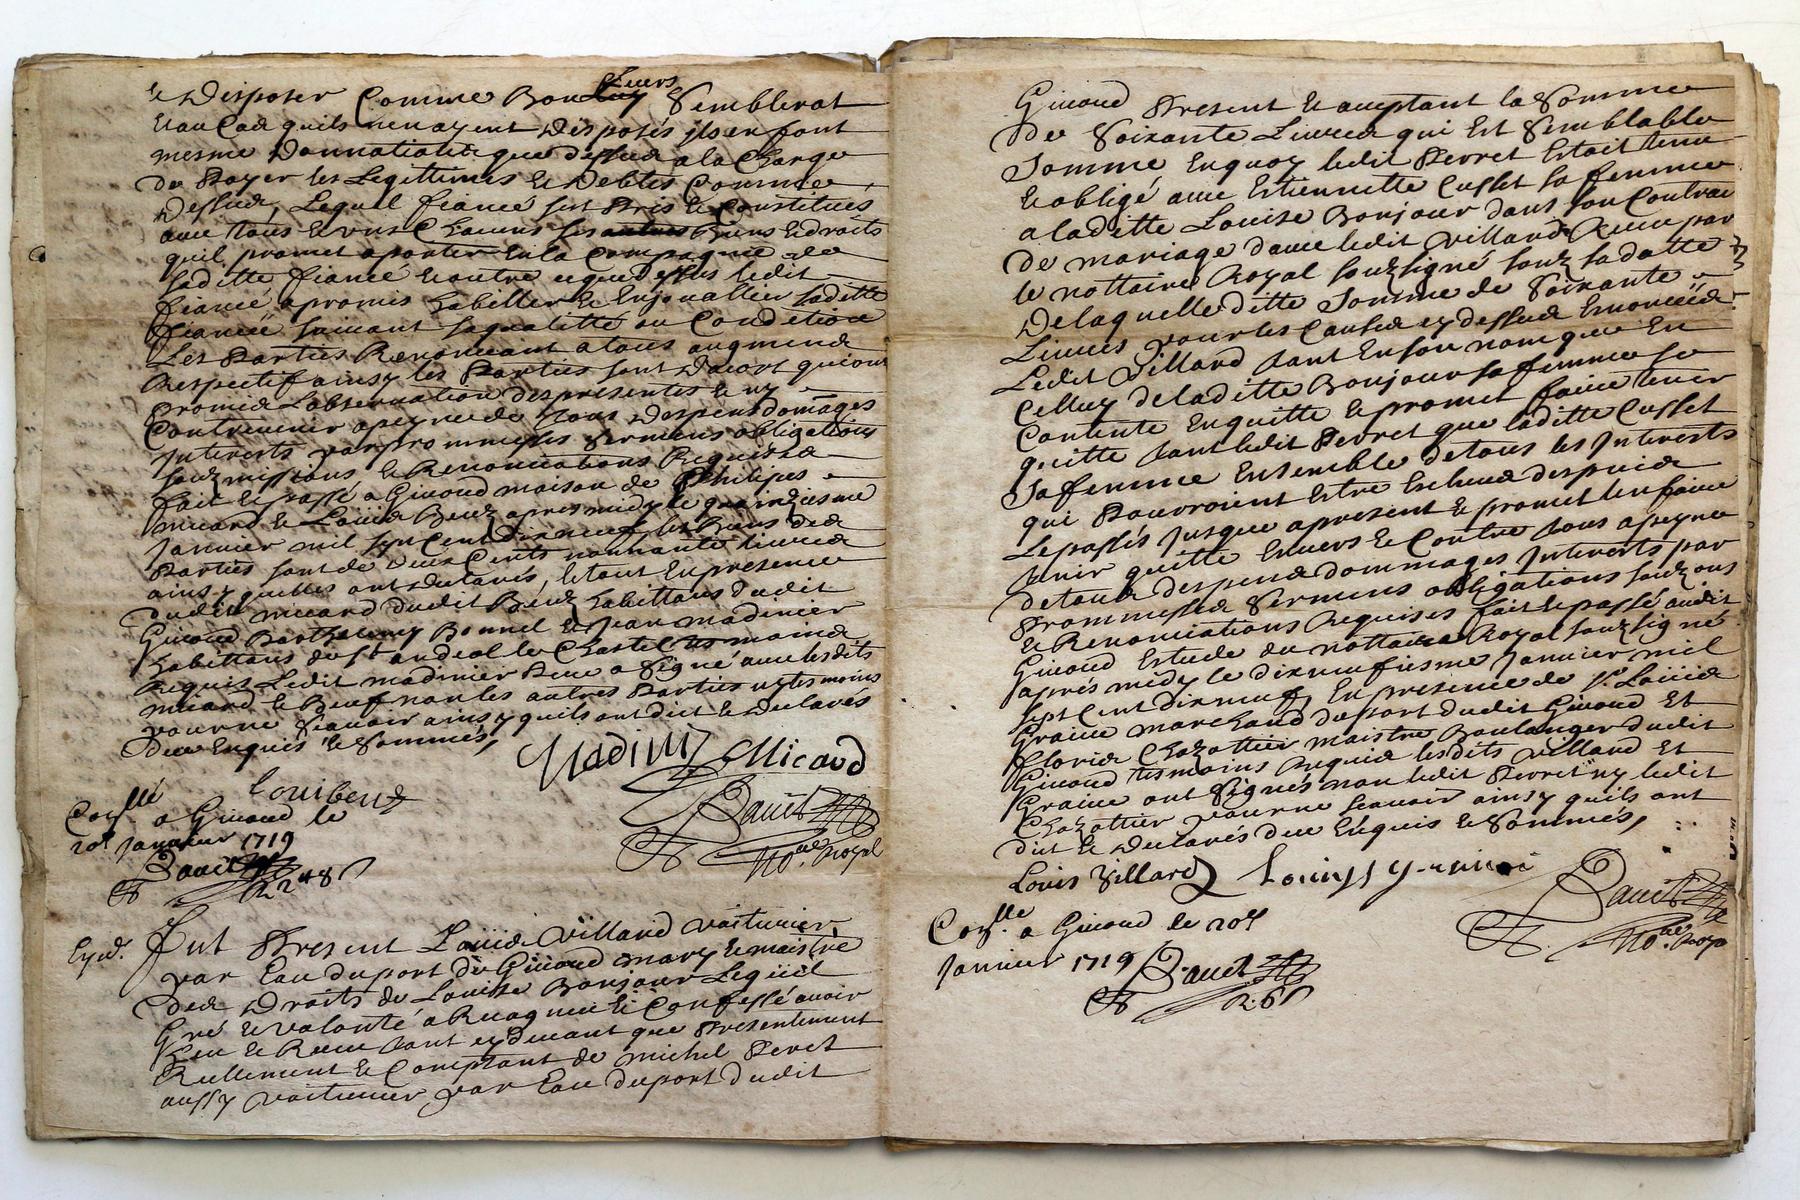 & disposer Comme Bon Leurs Semblerat
Et au Cas quils nen ayent disposés ils en font
mesme donnation que dessus a la Charge
de Payer les Legittimes & debtes Comme
dessus, Lequel fiancé sest Pris & Constitués
avec tous & uns Chacuns ses Biens & droits
quil promet aporter En la Compagnie de
saditte fiancé Et outre ce que dessus ledit
fiancé a promis habiller & Enjouallier saditte
fiancée suivant sa qualitté ou Condition
Les Parties Renonceant a tous augments
Respectif ainsy les Parties sont dacort qui ont
promis Lobservation des presentes & ny
Contrevenir a peyne de tous despens domages
Interests par prommesses sermens obligations
soubmissions & Renonciations Requises
fait & passé a Givord maison de Philipes
micard & Louis Beuf apres midy le quinziesme
Janvier mil sept Cent dix neuf, les Biens des
Parties sont de deux Cents nonnante Livres
ainsy quelles ont declarés, le tout En presence
dudit micard dudit Beuf habittans dudit
Givord Barthelemy Bonnel & Jean madinier
habittans de St andeol le Chastel tesmoins
Requis Ledit madinier a signé avec lesdits
micard & Beuf non les autres Parties ny tesmoins
pour ne scavoir ainsy quils ont dict & declarés
deue Enquis & Sommés,
Madinier Micard
Louis beuf
Conllé a Givord le
20e Janvier 1719
Noe Royal
Expd. Fut Present Louis Villard voiturier
par Eau du port de Givord mary & maistre
des droits de Louise Bonjour Lequel
Gré & volonté a Recogneu & Confessé avoir
heu & Receu tant cy devant que Presentement
Reellement & Comptant de michel Perret
aussy voiturier par Eau du port dudit
Givord Present & acceptant la Somme
de Soixante Livres qui Est Semblable
Somme En quoy ledit Perret Estoit tenu
& obligé avec Estiennette Cusset sa femme
a laditte Louise Bonjour dans son Contrat
de mariage davec ledit Villard Receu par
le nottaire Royal souzsigné souz sa datte
De laquelle ditte Somme de Soixante
Livres pour les Causes cy dessus Enoncées
Ledit Villard tant En son nom que En
Celluy de laditte Bonjour sa femme se
Contente En quitte & promet faire tenir
quitte tant ledit Perret que laditte Cusset
sa femme Ensemble de tous les Interests
qui Pouvroient Estre Escheus despuis
Le passés Jusque a present & promet len faire
tenir quitte Envers & Contre tous a peyne
de tous despens dommages Interests par
Prommesses Sermens obligations souz ons
& Renonciations Requises fait & passé audit
Givord Estude du nottaire Royal souzsigné
aprés midy le dixneufiesme Janvier mil
sept Cent dixneuf, En presence de Sr. Louis
Graive marchand du port dudit Givord Et
Claude Chazottier maistre Boulanger dudit
Givord tesmoins Requis lesdits Villard Et
Graive ont Signés non ledit Perret ny ledit
Chazottier pour ne scavoir ainsy quils ont
dict & declarés deue Enquis & Sommés,
Louis Villard
Conllé a Givord le 20e
Janvier 1719
Noe Roya